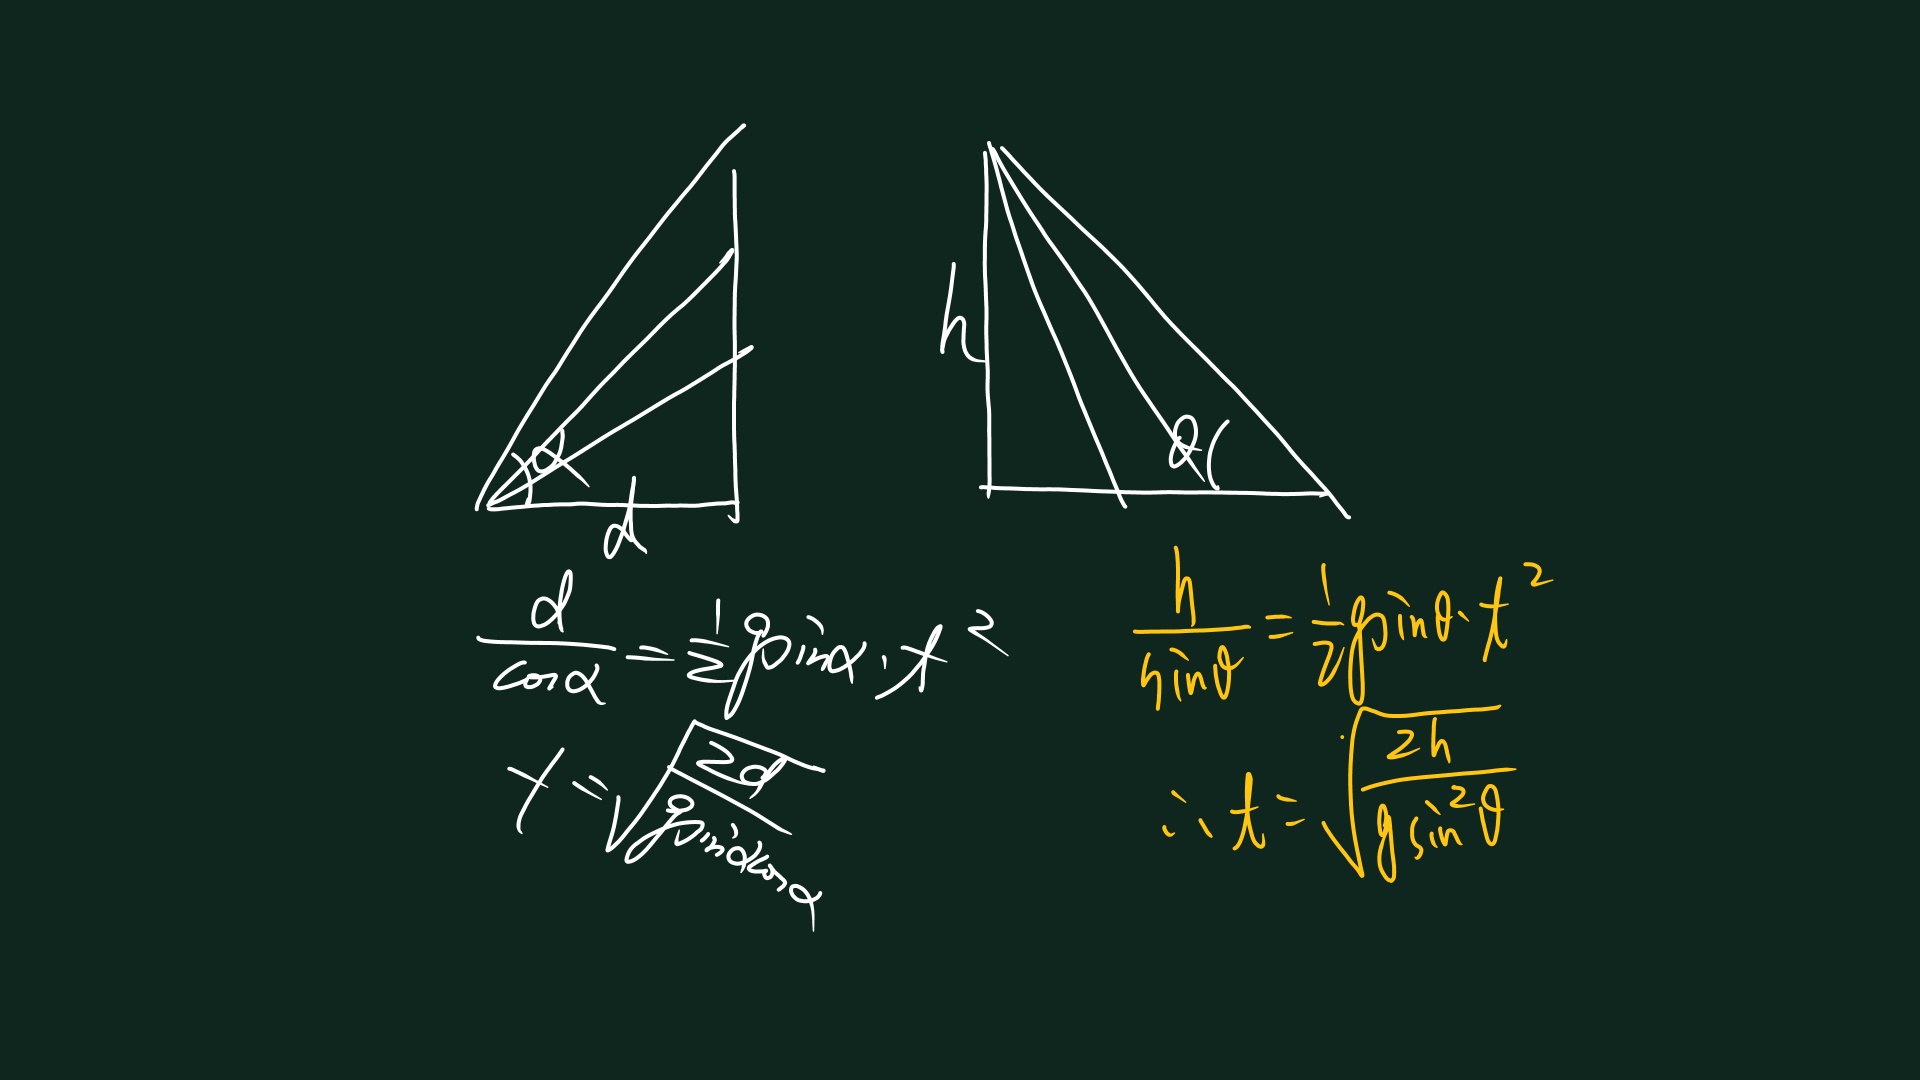 α
d
d/cosα = 1/2 gsinα·t²
t = √(2d/gsinαcosα)
h
θ
h/sinθ = 1/2 gsinθ·t²
∴ t = √(2h/gsin²θ)